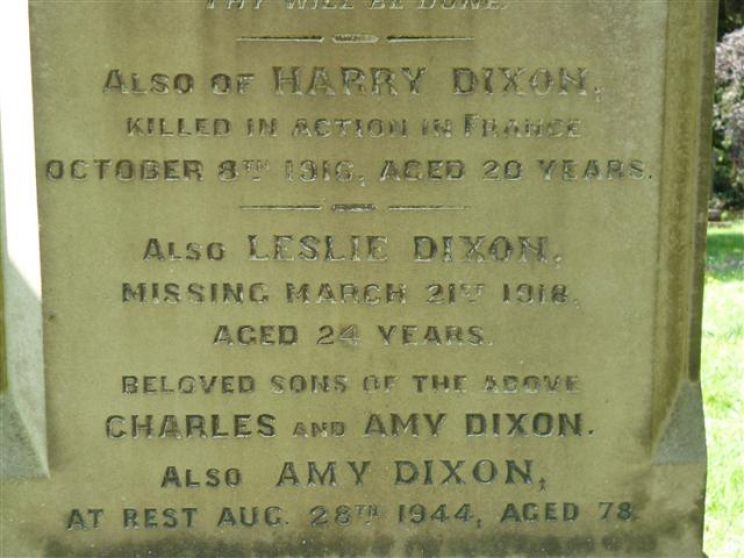 THY WILL BE DONE.
ALSO OF HARRY DIXON,
KILLED IN ACTION IN FRANCE
OCTOBER 8TH 1916, AGED 20 YEARS.
ALSO LESLIE DIXON,
MISSING MARCH 21ST 1918,
AGED 24 YEARS.
BELOVED SONS OF THE ABOVE
CHARLES AND AMY DIXON.
ALSO AMY DIXON,
AT REST AUG. 28TH 1944, AGED 78.